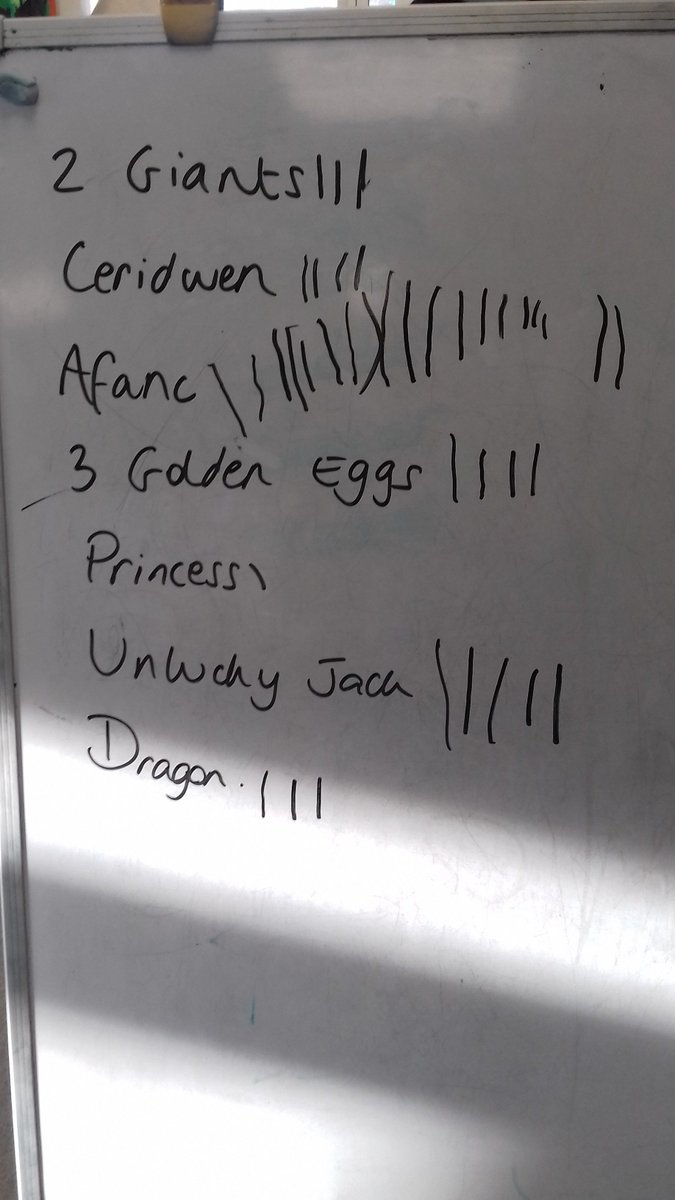 2 Giants |||
Ceridwen ||||
Afanc ||||||||||||||||||||||
3 Golden Eggs ||||
Princess \
Unlucky Jack |||||
Dragon. |||